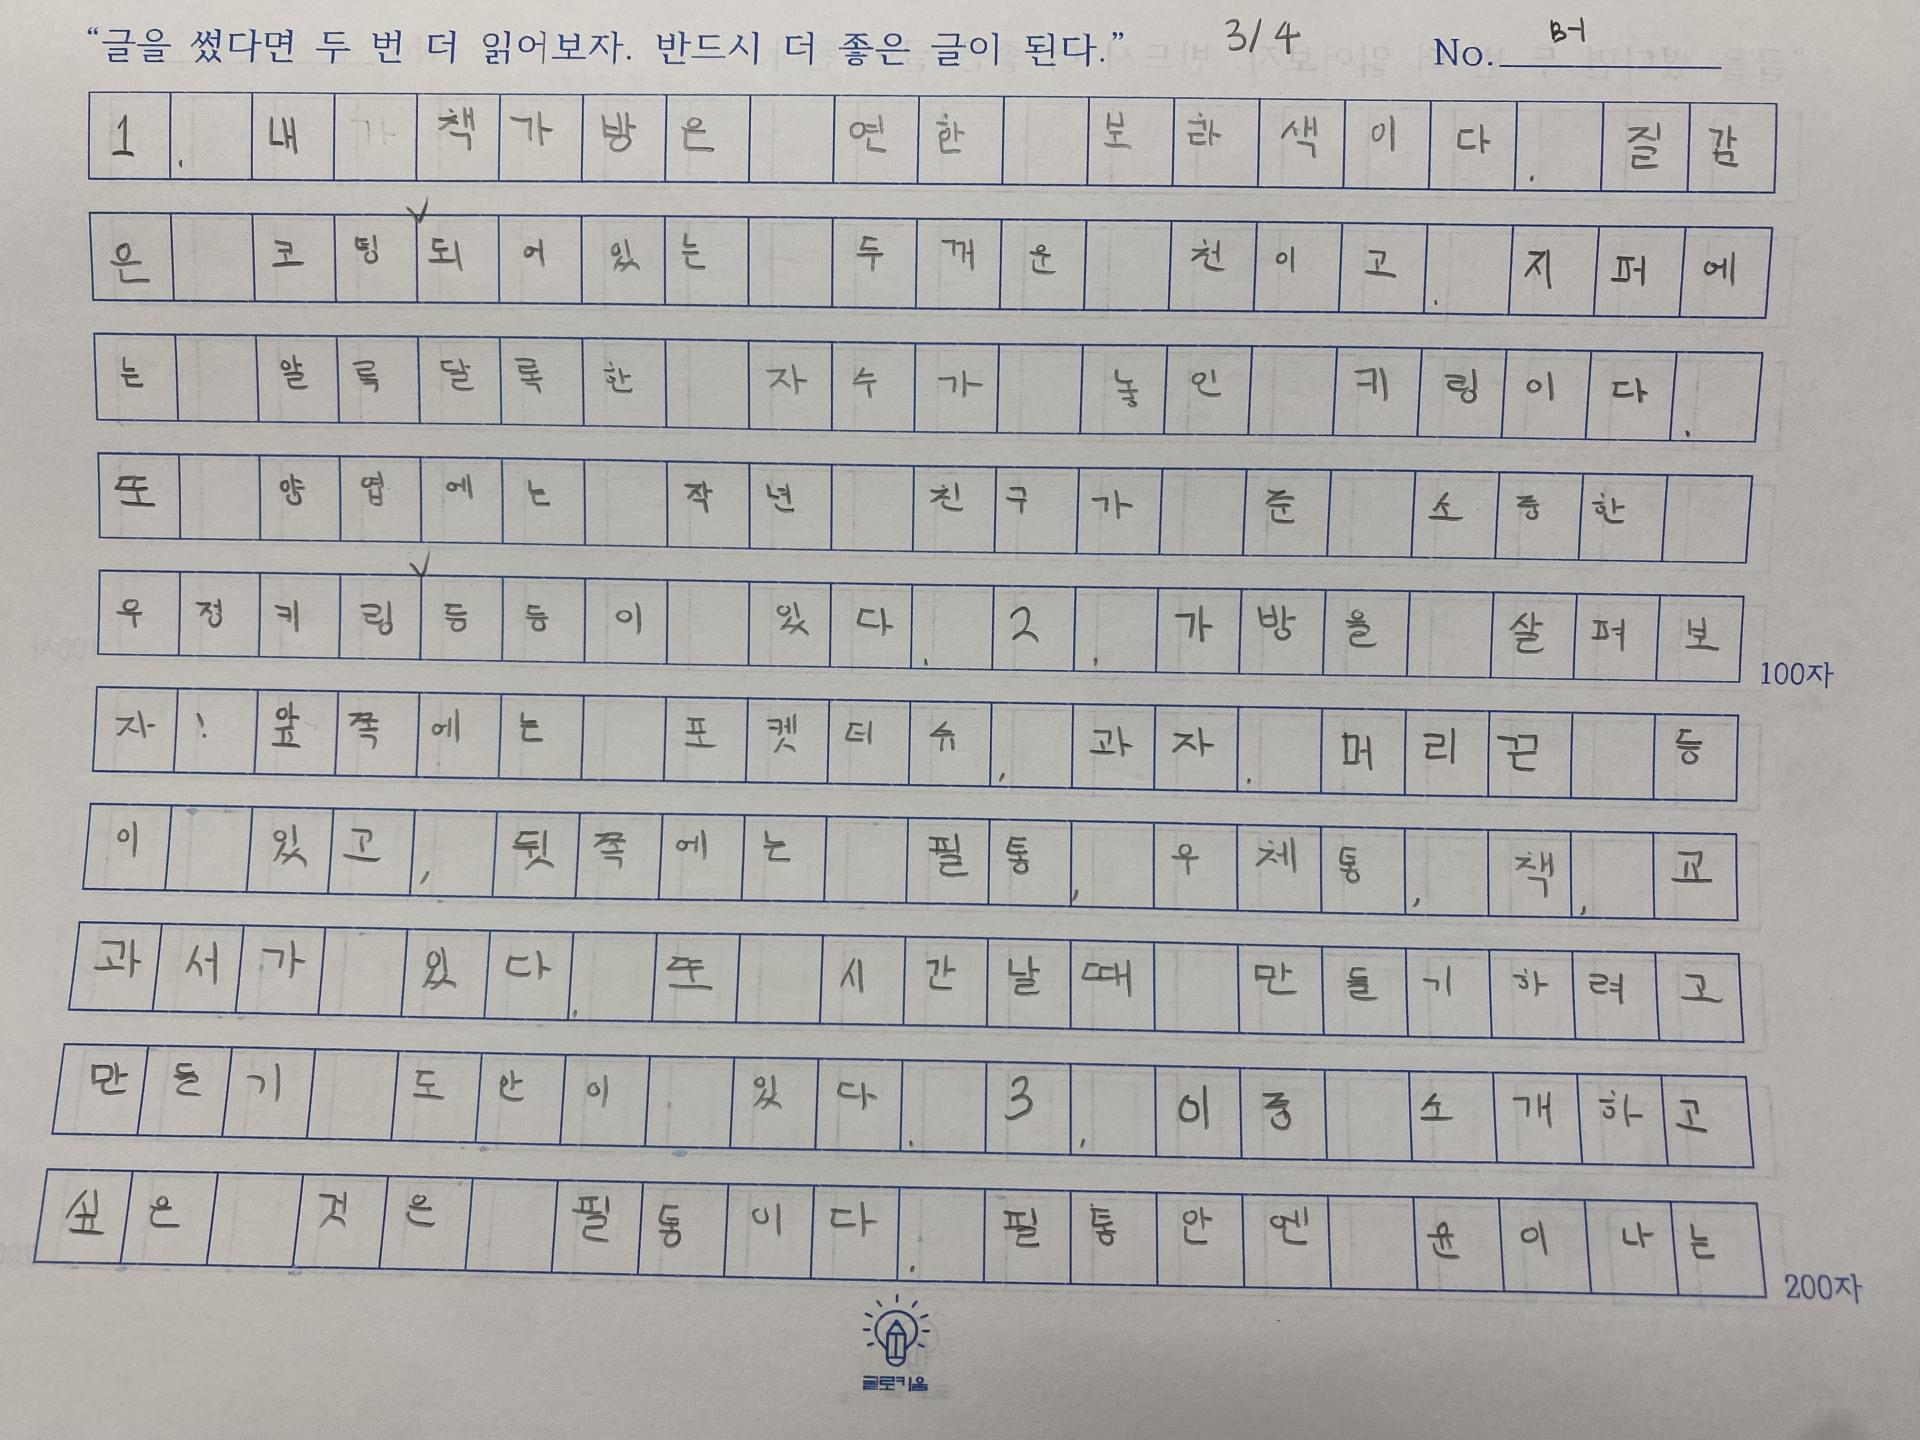 “글을 썼다면 두 번 더 읽어보자. 반드시 더 좋은 글이 된다.” 3/4 No. B-1
1. 내 책가방은 연한 보라색이다. 질감
은 코팅되어있는 두꺼운 천이고. 지퍼에
는 알록달록한 자수가 놓인 키링이다.
또 양옆에는 작년 친구가 준 소중한
우정키링등등이 있다. 2. 가방을 살펴보
100자
자! 앞쪽에는 포켓티슈, 과자. 머리끈 등
이 있고, 뒷쪽에는 필통, 우체통, 책, 교
과서가 있다. 또 시간날때 만들기하려고
만든기 도안이 있다. 3. 이중 소개하고
싶은 것은 필통이다. 필통안엔 윤이나는
200자
글로키움